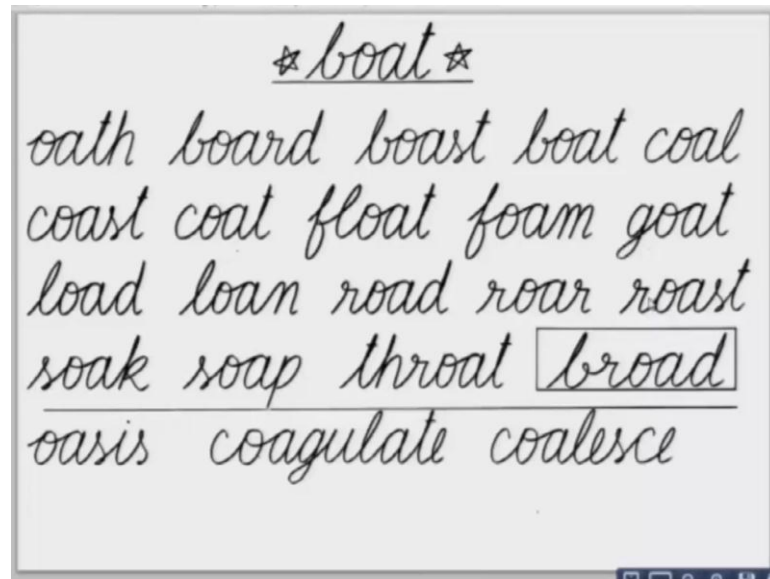 ☆ boat ☆
oath board boast boat coal
coast coat float foam goat
load loan road roar roast
soak soap throat broad
oasis coagulate coalesce